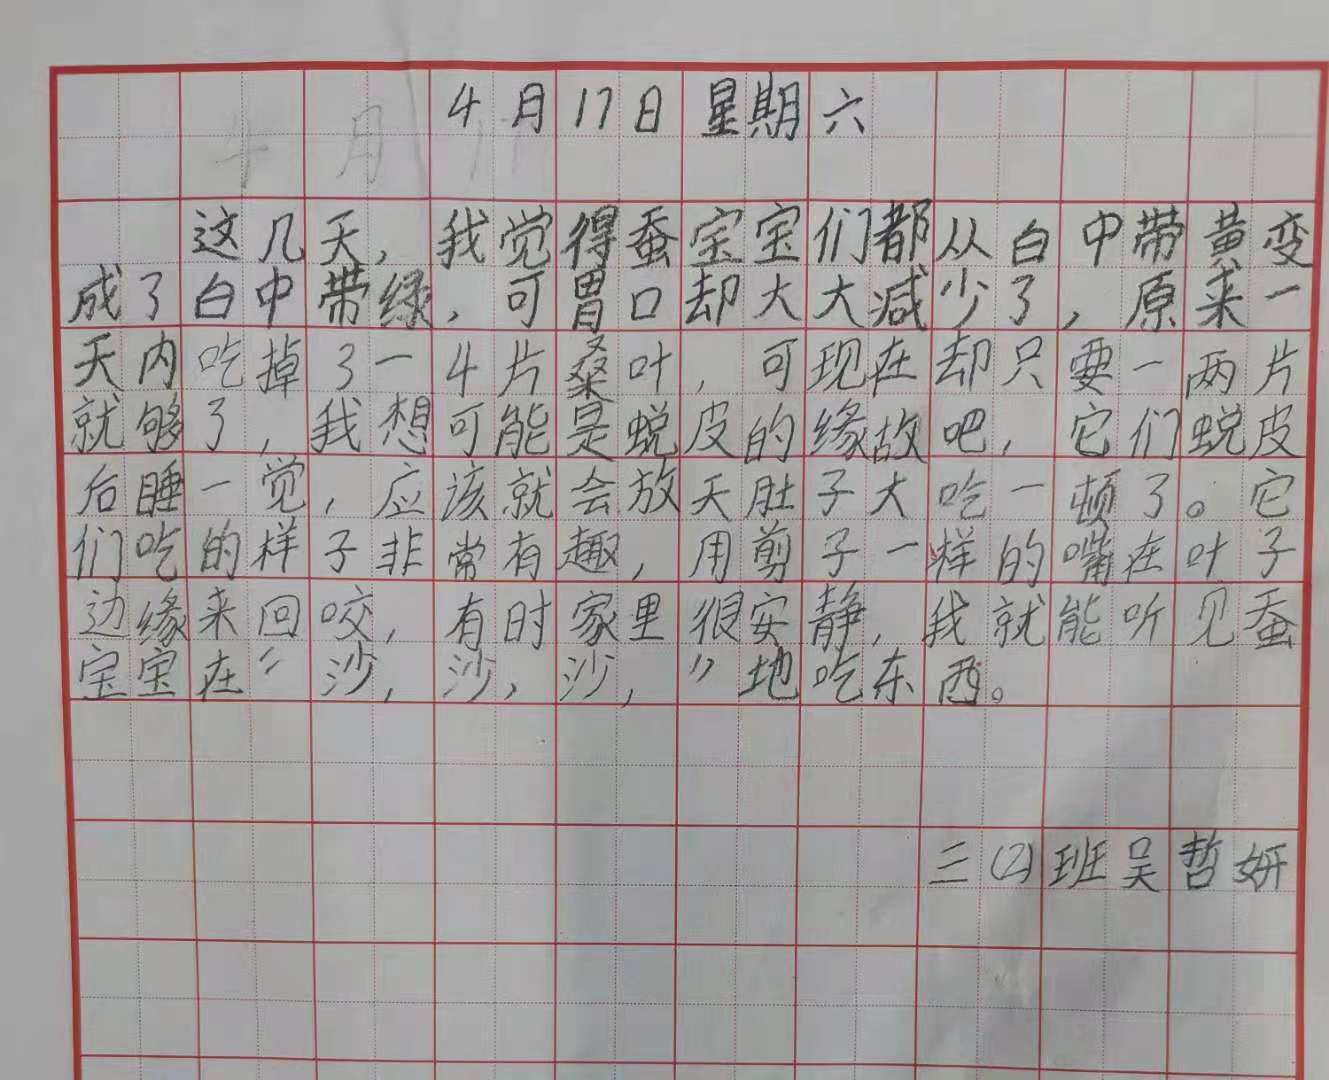 4月17日 星期六
这几天，我觉得蚕宝宝们都从白中带黄变
成了白中带绿，可胃口却大大减少了，原来一
天内吃掉3一4片桑叶，可现在却只要一两片
就够了，我想可能是蜕皮的缘故吧，它们蜕皮
后睡一觉，应该就会放天肚子大吃一顿了。它
们吃的样子非常有趣，用剪子一样的嘴在叶子
边缘来回咬，有时家里很安静，我就能听见蚕
宝宝在“沙，沙，沙，”地吃东西。
三(2)班吴哲妍